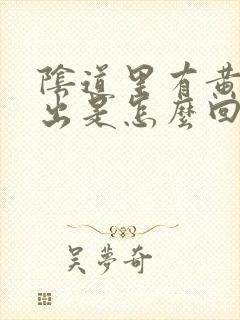 陰道里有黃
出是怎麼回
吴夢奇